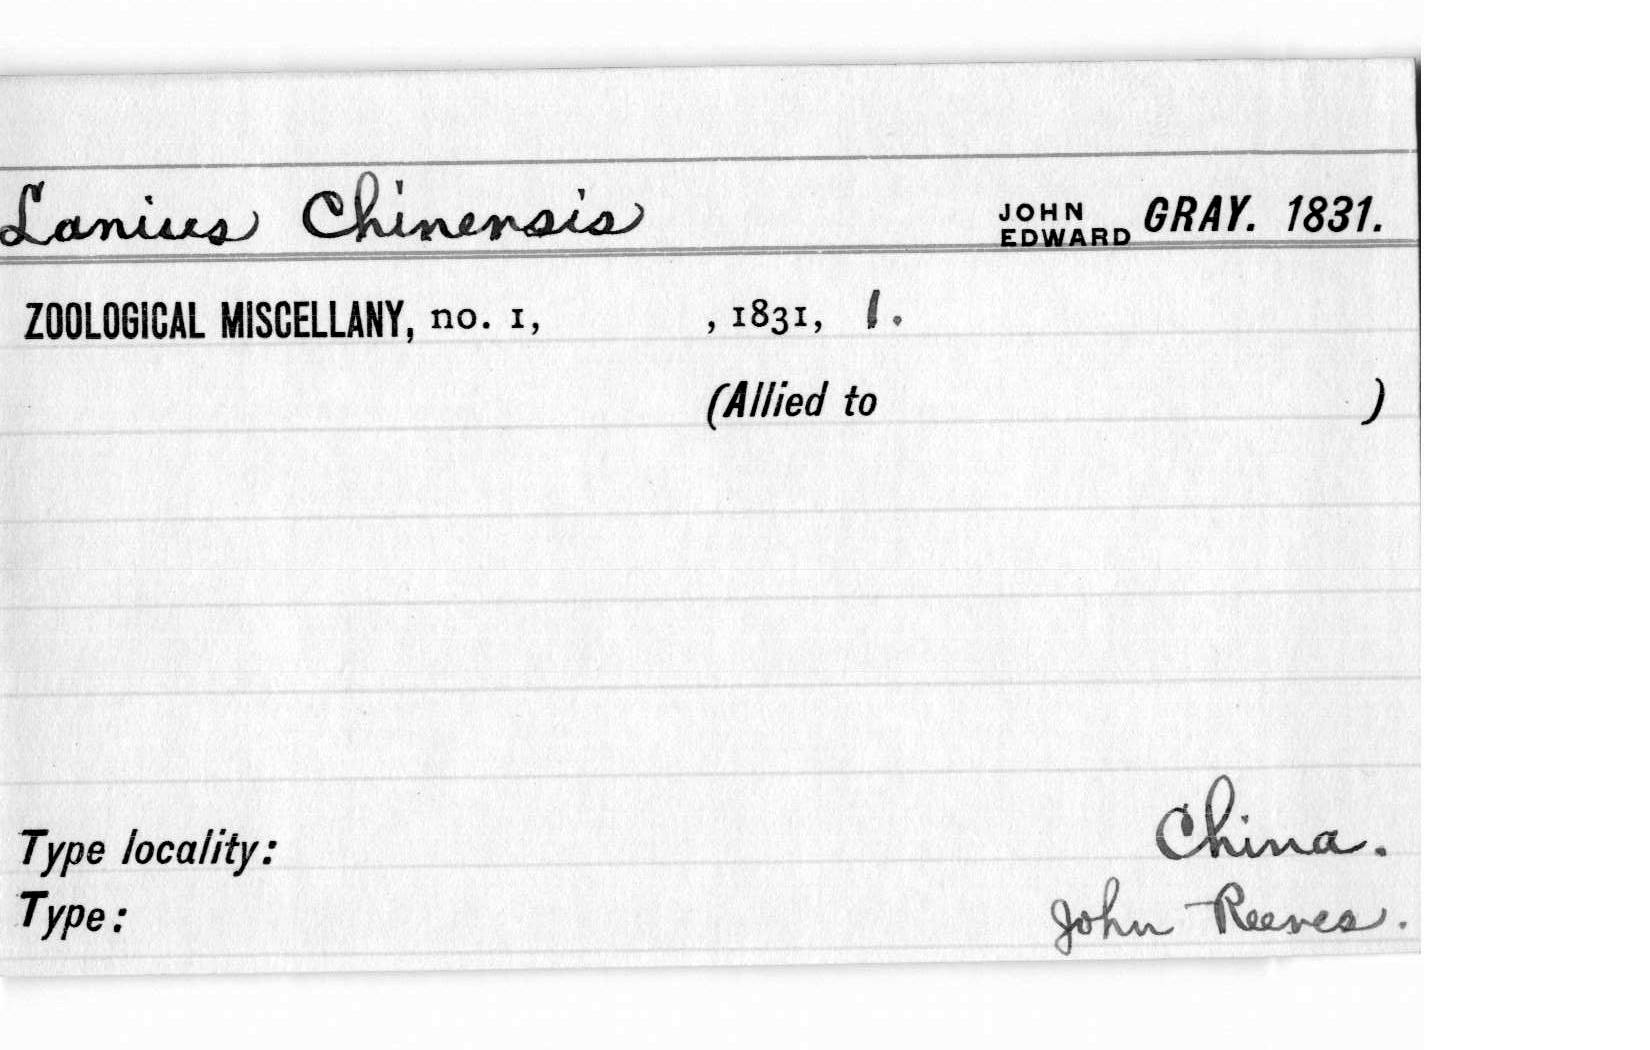 Lanius Chinensis JOHN EDWARD GRAY. 1831.
ZOOLOGICAL MISCELLANY, no. 1, , 1831, 1.
(Allied to )
Type locality: China.
Type: John Reeves.